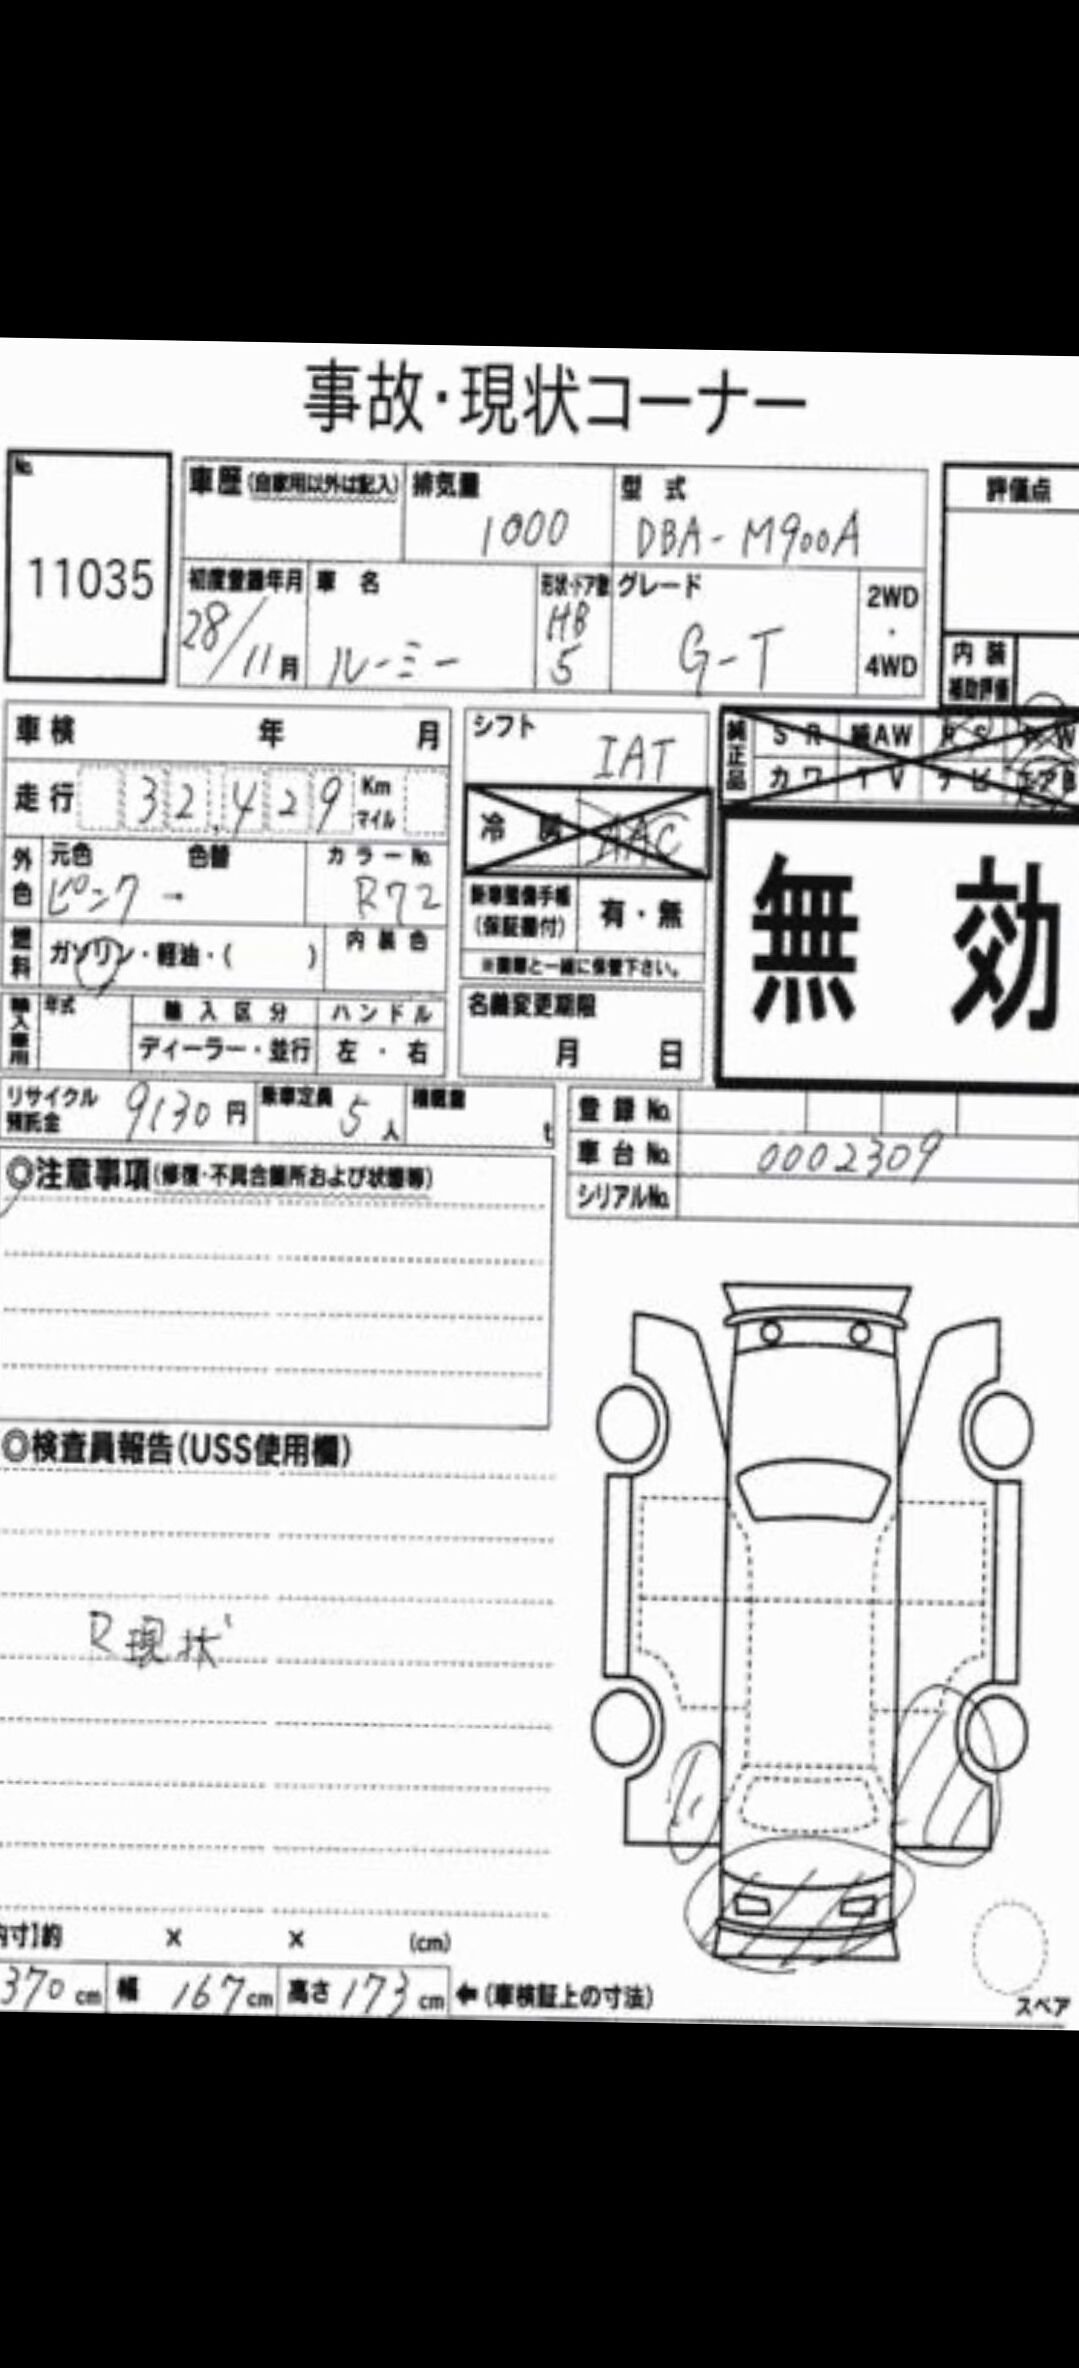 事故・現状コーナー
No.
11035
車歴(自家用以外は記入)
排気量
1000
型 式
DBA-M900A
評価点
初度登録年月
28/11月
車 名
ルーミー
形状・ドア数
HB
5
グレード
G-T
2WD
・
4WD
内 装
補助評価
車検 年 月
シフト
IAT
純正品
S R 純AW P S P W
カワ T V ナビ エアB
走行 32,429 Km
マイル
冷 房 AAC
無 効
外色
元色 色替
ピンク →
カラーNo.
R72
新車整備手帳
(保証書付)
有・無
燃料
ガソリン・軽油・( )
内 装 色
※書類と一緒に保管下さい。
輸入車用
年式
輸 入 区 分
ディーラー・並行
ハンドル
左 ・ 右
名義変更期限
月 日
リサイクル
預託金
9130円
乗車定員
5人
積載量
t
登 録 No.
車 台 No.
0002309
シリアルNo.
◎注意事項(修復・不具合箇所および状態等)
◎検査員報告(USS使用欄)
R現状
内寸]約 × × (cm)
370cm 幅 167cm 高さ 173cm ←(車検証上の寸法)
スペア